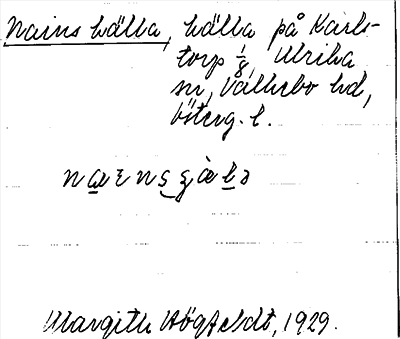 Nains källa, källa på Karls-
torp 1/8, Ulrika
sn, Valkebo hd,
Österg. l.
Margith Högfeldt, 1929.